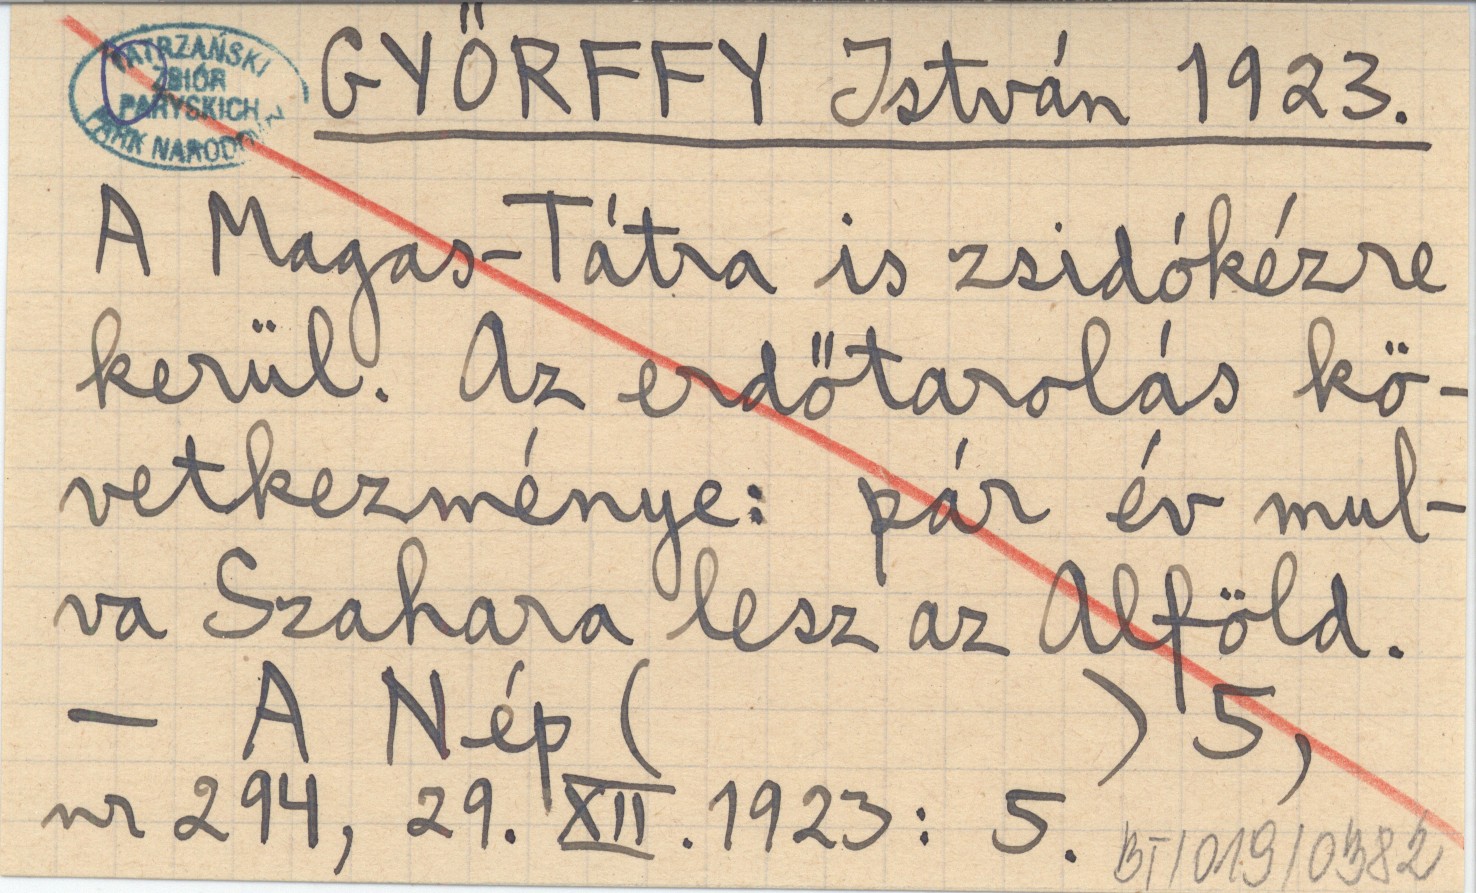 TATRZAŃSKI
ZBIÓR
PARYSKICH
PARK NARODOWY
GYŐRFFY István 1923.
A Magas-Tátra is zsidókézre
kerül. Az erdőtarolás kö-
vetkezménye: pár év mul-
va Szahara lesz az Alföld.
— A Nép (          ) 5,
nr 294, 29. XII. 1923: 5.
BT/019/0382